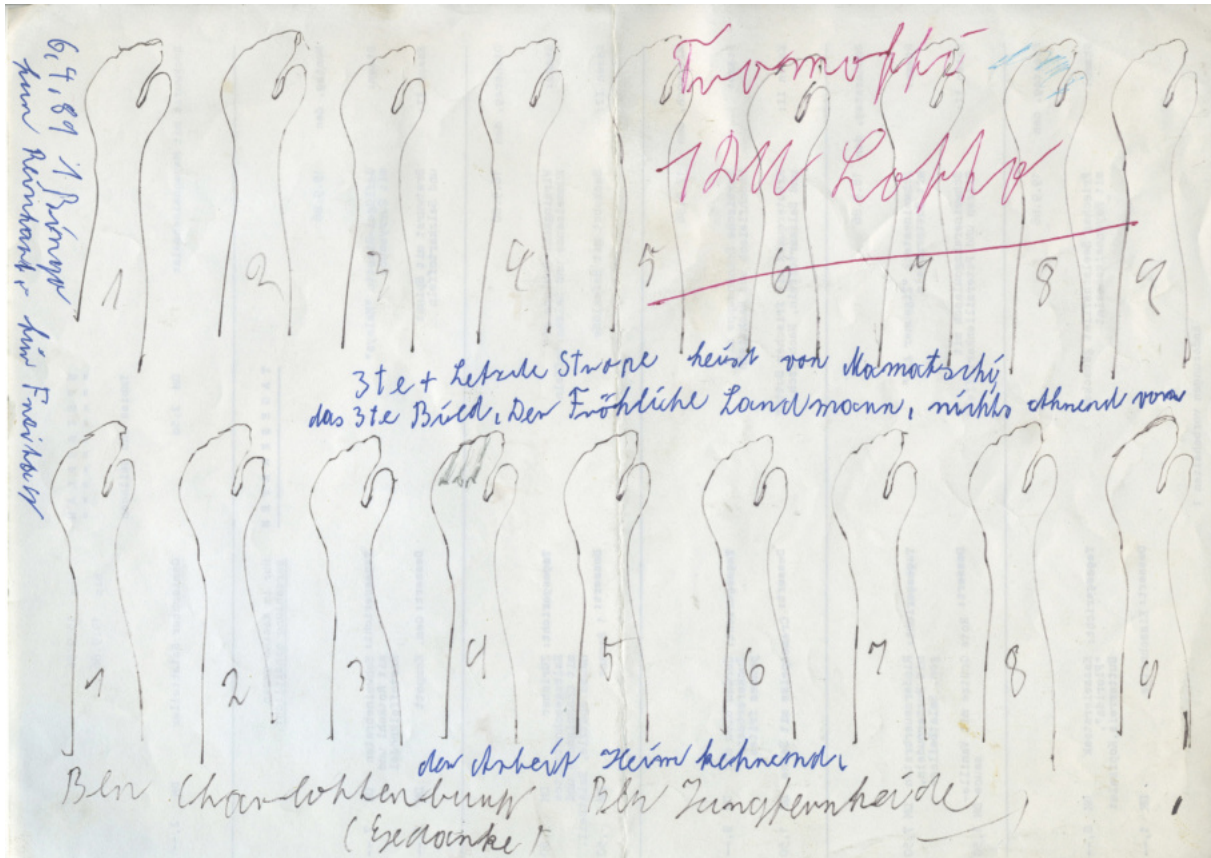 6,4,89 1 Bringo
zum Reinhard,- für Freitag
Tramoppi
1 DM Loppo
1 2 3 4 5 6 7 8 9
3te + Letzde Strope heist von Mamatschi
das 3te Bild, Der Fröhliche Landmann, nichts Ahnend von
1 2 3 4 5 6 7 8 9
der Arbeit Heimkehrend,
Bln Charlottenburg Bln Jungfernheide
(Gedanke)